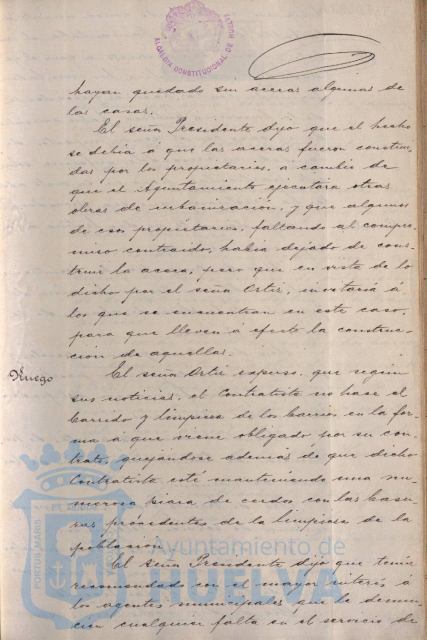 ALCALDIA CONSTITUCIONAL DE HUELVA
hayan quedado sin aceras algunas de
las casas.
El señor Presidente dijo que el hecho
se debia á que las aceras fueron construi-
das por los propietarios, a cambio de
que el Ayuntamiento ejecutara otras
obras de urbanización, y que algunos
de esos propietarios, faltando al compro-
miso contraido, habia dejado de cons-
truir la acera, pero que en vista de lo
dicho por el señor Ortiz, invitaria á
los que se encuentran en este caso,
para que lleven á efecto la construc-
ción de aquellas.
Ruego
El señor Ortiz expuso, que según
sus noticias, el Contratista no hace el
barrido y limpieza de los barrios en la for-
ma a que viene obligado por su con-
trato, quejándose además de que dicho
Contratista esté manteniendo una nu-
merosa piara de cerdos con las basu-
ras procedentes de la limpieza de la
población.
El señor Presidente dijo que tenia
recomendado con el mayor interés á
los agentes municipales que le denun-
cien cualquier falta en el servicio de
PORTUS MARIS
Ayuntamiento de
HUELVA